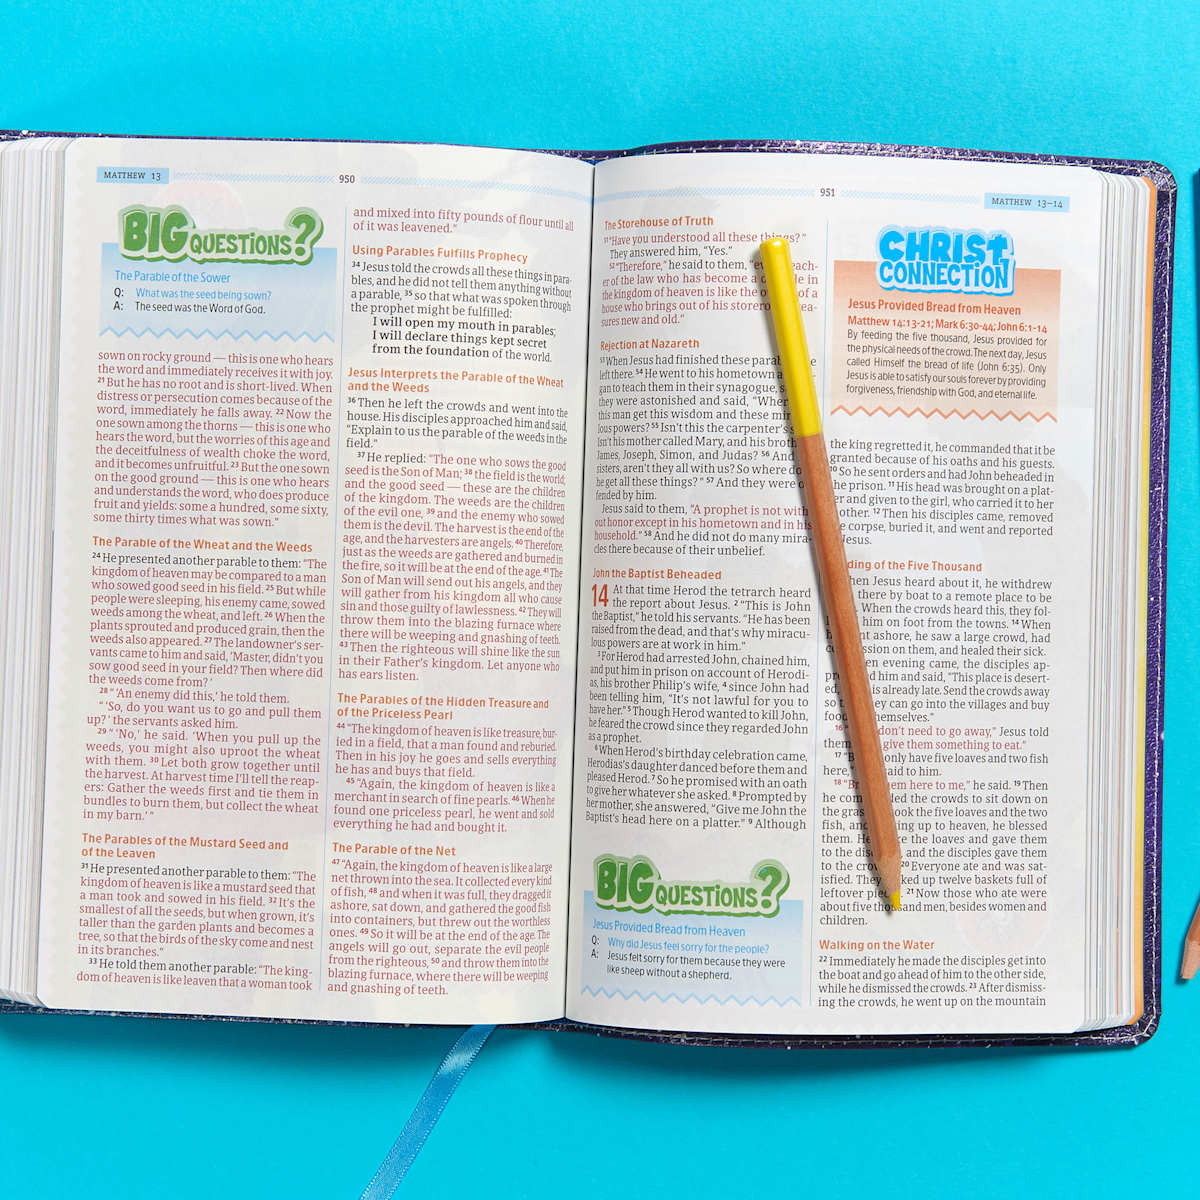 MATTHEW 13
950
BIG QUESTIONS?
The Parable of the Sower
Q: What was the seed being sown?
A: The seed was the Word of God.
sown on rocky ground — this is one who hears
the word and immediately receives it with joy.
21 But he has no root and is short-lived. When
distress or persecution comes because of the
word, immediately he falls away. 22 Now the
one sown among the thorns — this is one who
hears the word, but the worries of this age and
the deceitfulness of wealth choke the word,
and it becomes unfruitful. 23 But the one sown
on the good ground — this is one who hears
and understands the word, who does produce
fruit and yields: some a hundred, some sixty,
some thirty times what was sown."
The Parable of the Wheat and the Weeds
24 He presented another parable to them: "The
kingdom of heaven may be compared to a man
who sowed good seed in his field. 25 But while
people were sleeping, his enemy came, sowed
weeds among the wheat, and left. 26 When the
plants sprouted and produced grain, then the
weeds also appeared. 27 The landowner's ser-
vants came to him and said, 'Master, didn't you
sow good seed in your field? Then where did
the weeds come from?'
28 " 'An enemy did this,' he told them.
" 'So, do you want us to go and pull them
up?' the servants asked him.
29 " 'No,' he said. 'When you pull up the
weeds, you might also uproot the wheat
with them. 30 Let both grow together until
the harvest. At harvest time I'll tell the reap-
ers: Gather the weeds first and tie them in
bundles to burn them, but collect the wheat
in my barn.' "
The Parables of the Mustard Seed and
of the Leaven
31 He presented another parable to them: "The
kingdom of heaven is like a mustard seed that
a man took and sowed in his field. 32 It's the
smallest of all the seeds, but when grown, it's
taller than the garden plants and becomes a
tree, so that the birds of the sky come and nest
in its branches."
33 He told them another parable: "The king-
dom of heaven is like leaven that a woman took
and mixed into fifty pounds of flour until all
of it was leavened."
Using Parables Fulfills Prophecy
34 Jesus told the crowds all these things in para-
bles, and he did not tell them anything without
a parable, 35 so that what was spoken through
the prophet might be fulfilled:
I will open my mouth in parables;
I will declare things kept secret
from the foundation of the world.
Jesus Interprets the Parable of the Wheat
and the Weeds
36 Then he left the crowds and went into the
house. His disciples approached him and said,
"Explain to us the parable of the weeds in the
field."
37 He replied: "The one who sows the good
seed is the Son of Man; 38 the field is the world;
and the good seed — these are the children
of the kingdom. The weeds are the children
of the evil one, 39 and the enemy who sowed
them is the devil. The harvest is the end of the
age, and the harvesters are angels. 40 Therefore,
just as the weeds are gathered and burned in
the fire, so it will be at the end of the age. 41 The
Son of Man will send out his angels, and they
will gather from his kingdom all who cause
sin and those guilty of lawlessness. 42 They will
throw them into the blazing furnace where
there will be weeping and gnashing of teeth.
43 Then the righteous will shine like the sun
in their Father's kingdom. Let anyone who
has ears listen.
The Parables of the Hidden Treasure and
of the Priceless Pearl
44 "The kingdom of heaven is like treasure, bur-
ied in a field, that a man found and reburied.
Then in his joy he goes and sells everything
he has and buys that field.
45 "Again, the kingdom of heaven is like a
merchant in search of fine pearls. 46 When he
found one priceless pearl, he went and sold
everything he had and bought it.
The Parable of the Net
47 "Again, the kingdom of heaven is like a large
net thrown into the sea. It collected every kind
of fish, 48 and when it was full, they dragged it
ashore, sat down, and gathered the good fish
into containers, but threw out the worthless
ones. 49 So it will be at the end of the age. The
angels will go out, separate the evil people
from the righteous, 50 and throw them into the
blazing furnace, where there will be weeping
and gnashing of teeth.
951
MATTHEW 13–14
The Storehouse of Truth
51 "Have you understood all these things?"
They answered him, "Yes."
52 "Therefore," he said to them, "every teach-
er of the law who has become a in
the kingdom of heaven is like the of a
house who brings out of his storeroom trea-
sures new and old."
Rejection at Nazareth
53 When Jesus had finished these
left there. 54 He went to his hometown
gan to teach them in their synagogue,
they were astonished and said,
this man get this wisdom and these
ulous powers? 55 Isn't this the carpenter's
Isn't his mother called Mary, and his
James, Joseph, Simon, and Judas? 56 And
sisters, aren't they all with us? So where
he get all these things?" 57 And they were
fended by him.
Jesus said to them, "A prophet is not with-
out honor except in his hometown and in his
household." 58 And he did not do many mira-
cles there because of their unbelief.
John the Baptist Beheaded
14 At that time Herod the tetrarch heard
the report about Jesus. 2 "This is John
the Baptist," he told his servants. "He has been
raised from the dead, and that's why miracu-
lous powers are at work in him."
3 For Herod had arrested John, chained him,
and put him in prison on account of Herodi-
as, his brother Philip's wife, 4 since John had
been telling him, "It's not lawful for you to
have her." 5 Though Herod wanted to kill John,
he feared the crowd since they regarded John
as a prophet.
6 When Herod's birthday celebration came,
Herodias's daughter danced before them and
pleased Herod. 7 So he promised with an oath
to give her whatever she asked. 8 Prompted by
her mother, she answered, "Give me John the
Baptist's head here on a platter." 9 Although
BIG QUESTIONS?
Jesus Provided Bread from Heaven
Q: Why did Jesus feel sorry for the people?
A: Jesus felt sorry for them because they were
like sheep without a shepherd.
CHRIST CONNECTION
Jesus Provided Bread from Heaven
Matthew 14:13-21; Mark 6:30-44; John 6:1-14
By feeding the five thousand, Jesus provided for
the physical needs of the crowd. The next day, Jesus
called Himself the bread of life (John 6:35). Only
Jesus is able to satisfy our souls forever by providing
forgiveness, friendship with God, and eternal life.
the king regretted it, he commanded that it be
granted because of his oaths and his guests.
10 So he sent orders and had John beheaded in
the prison. 11 His head was brought on a plat-
er and given to the girl, who carried it to her
other. 12 Then his disciples came, removed
e corpse, buried it, and went and reported
Jesus.
ding of the Five Thousand
hen Jesus heard about it, he withdrew
there by boat to a remote place to be
. When the crowds heard this, they fol-
him on foot from the towns. 14 When
ashore, he saw a large crowd, had
on them, and healed their sick.
evening came, the disciples ap-
him and said, "This place is desert-
is already late. Send the crowds away
can go into the villages and buy
themselves."
16 don't need to go away," Jesus told
give them something to eat."
17 only have five loaves and two fish
here," said to him.
18 them here to me," he said. 19 Then
he the crowds to sit down on
the took the five loaves and the two
fish, and up to heaven, he blessed
them. He the loaves and gave them
to the , and the disciples gave them
to the 20 Everyone ate and was sat-
isfied. They up twelve baskets full of
leftover 21 Now those who ate were
about five thousand men, besides women and
children.
Walking on the Water
22 Immediately he made the disciples get into
the boat and go ahead of him to the other side,
while he dismissed the crowds. 23 After dismiss-
ing the crowds, he went up on the mountain